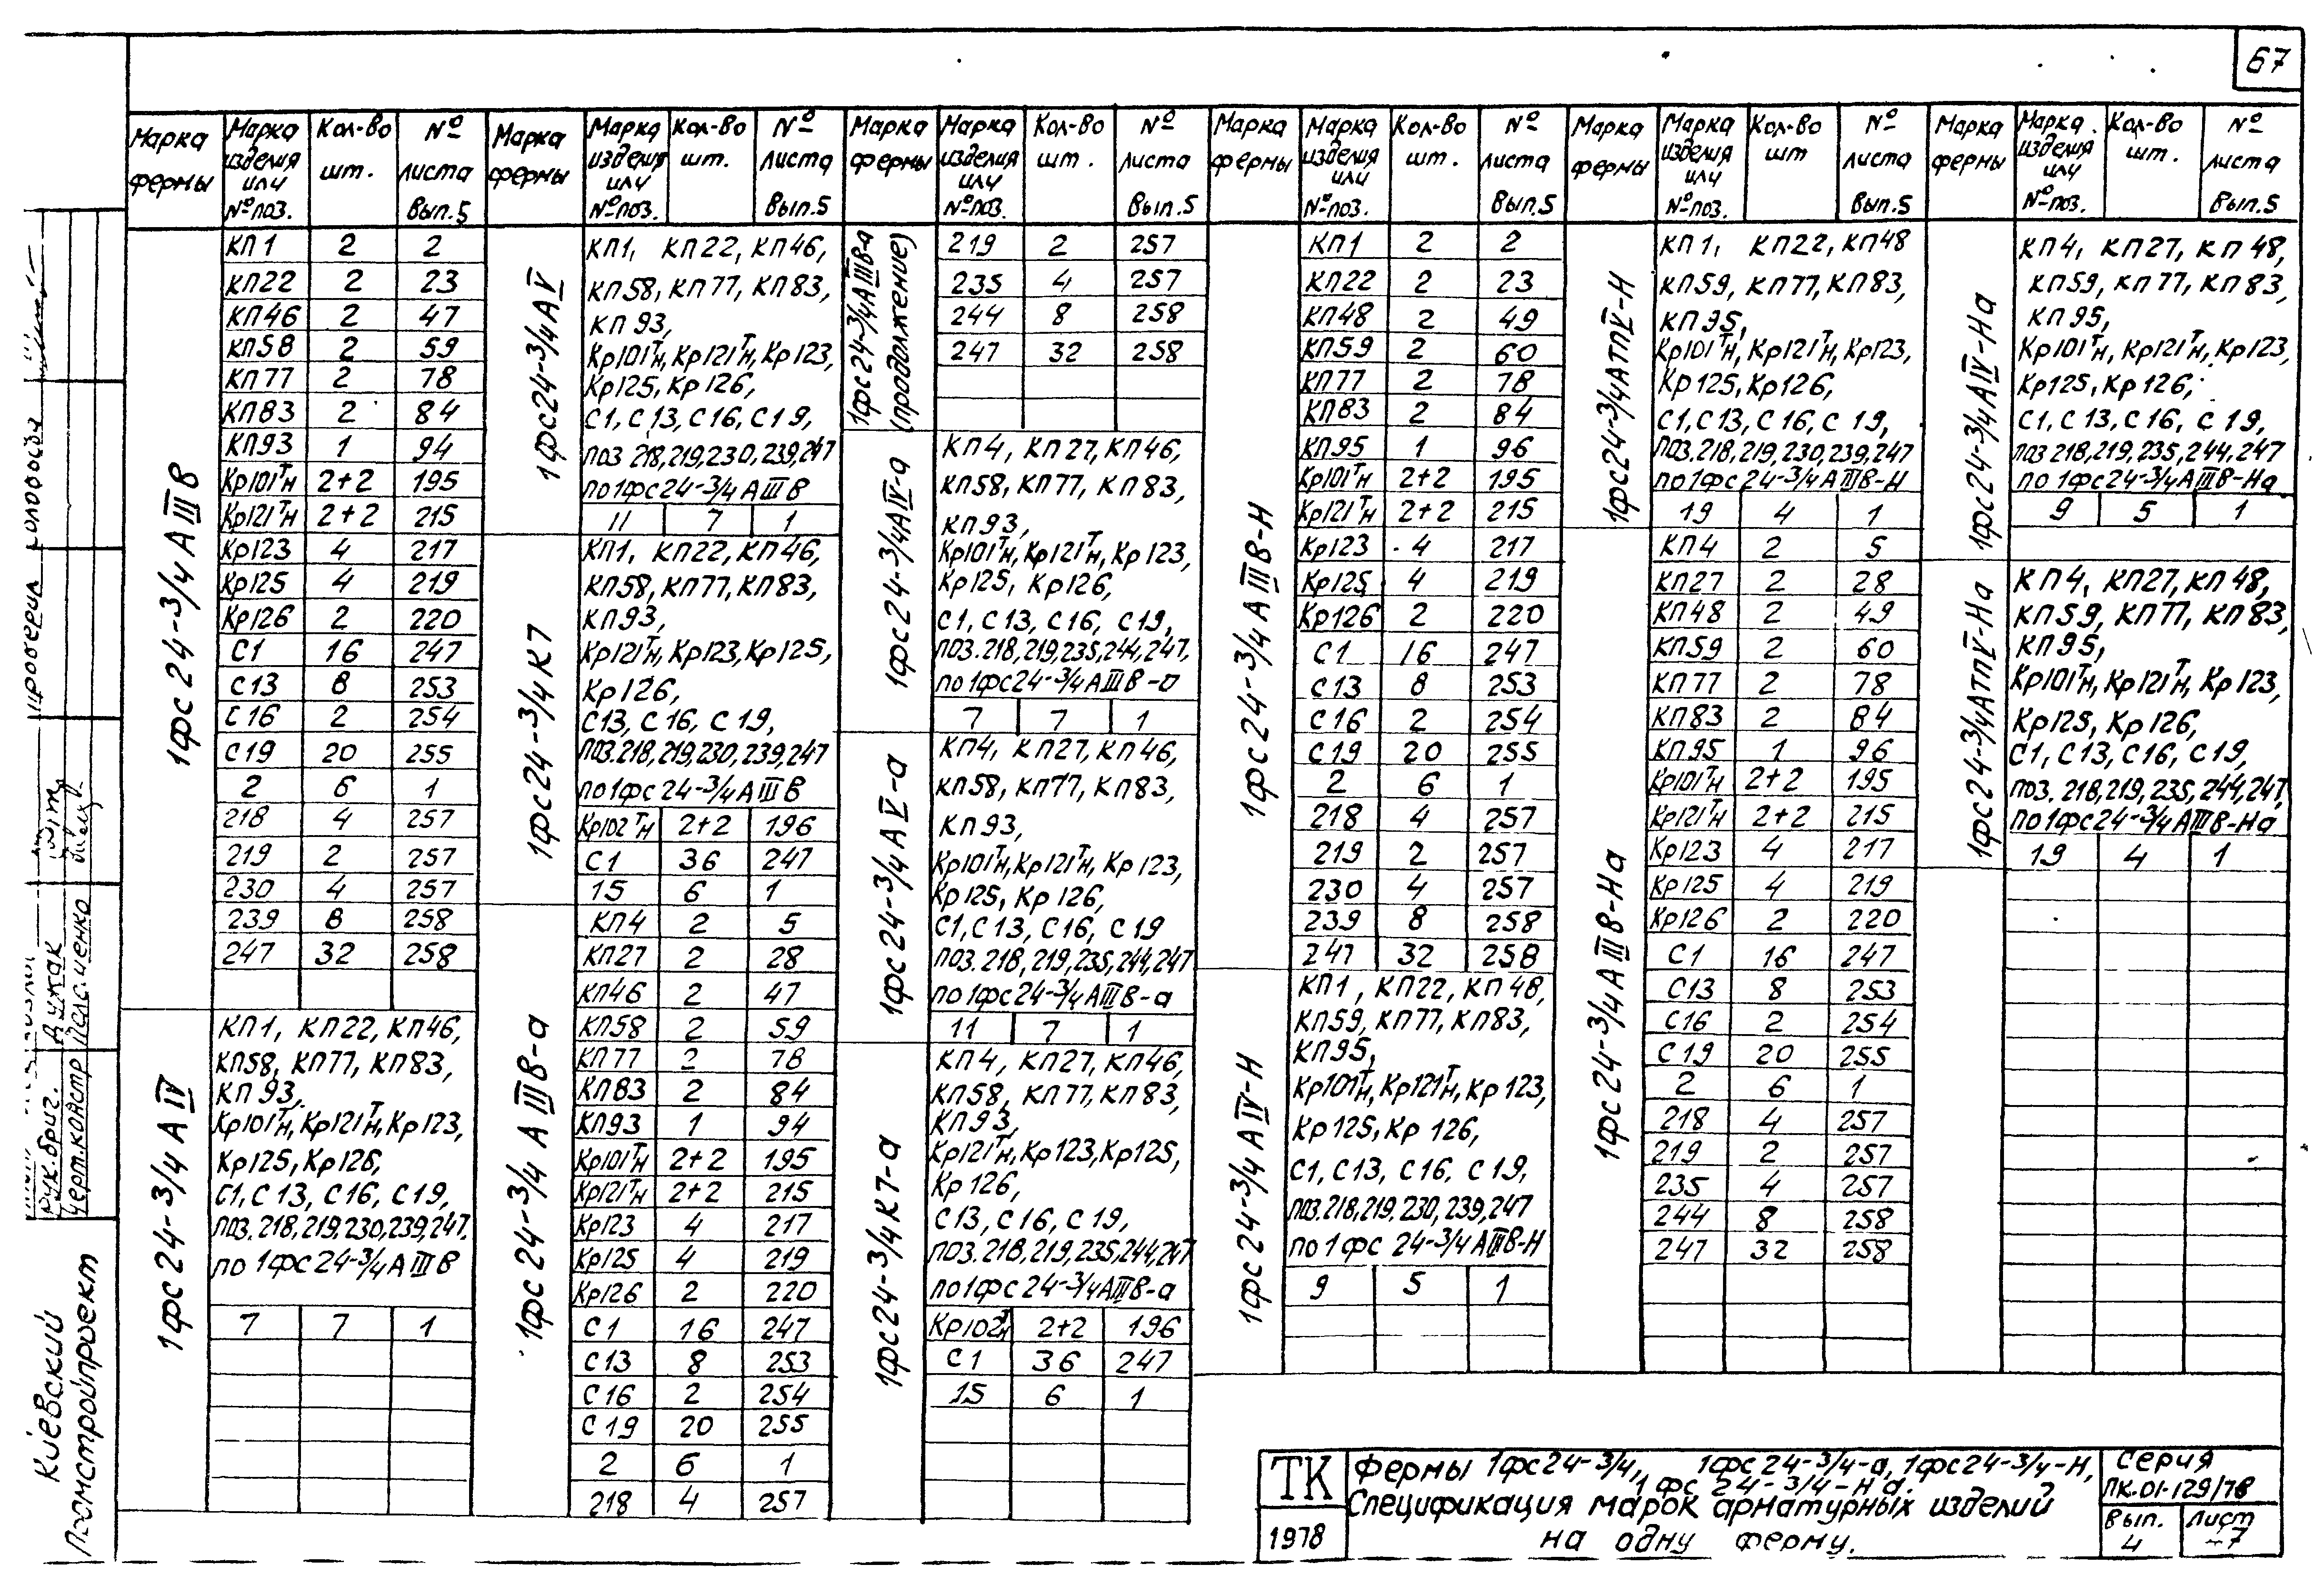 67
Марка фермы | Марка изделия или № поз. | Кол-во шт. | № листа Вып.5
1фс24-3/4АIIIВ
КП1 2 2
КП22 2 23
КП46 2 47
КП58 2 59
КП77 2 78
КП83 2 84
КП93 1 94
Кр101ᵀн 2+2 195
Кр121ᵀн 2+2 215
Кр123 4 217
Кр125 4 219
Кр126 2 220
С1 16 247
С13 8 253
С16 2 254
С19 20 255
2 6 1
218 4 257
219 2 257
230 4 257
239 8 258
247 32 258
1фс24-3/4АIV
КП1, КП22, КП46,
КП58, КП77, КП83,
КП93,
Кр101ᵀн, Кр121ᵀн, Кр123,
Кр125, Кр126,
С1, С13, С16, С19,
поз. 218, 219, 230, 239, 247.
по 1фс24-3/4АIIIВ
7 7 1
Марка фермы | Марка изделия или № поз. | Кол-во шт. | № листа Вып.5
1фс24-3/4АV
КП1, КП22, КП46,
КП58, КП77, КП83,
КП93,
Кр101ᵀн, Кр121ᵀн, Кр123,
Кр125, Кр126,
С1, С13, С16, С19,
поз 218, 219, 230, 239, 247
по 1фс24-3/4АIIIВ
11 7 1
1фс24-3/4К7
КП1, КП22, КП46,
КП58, КП77, КП83,
КП93,
Кр121ᵀн, Кр123, Кр125,
Кр126,
С13, С16, С19,
поз. 218, 219, 230, 239, 247
по 1фс24-3/4АIIIВ
Кр102ᵀн 2+2 196
С1 36 247
15 6 1
1фс24-3/4АIIIВ-а
КП4 2 5
КП27 2 28
КП46 2 47
КП58 2 59
КП77 2 78
КП83 2 84
КП93 1 94
Кр101ᵀн 2+2 195
Кр121ᵀн 2+2 215
Кр123 4 217
Кр125 4 219
Кр126 2 220
С1 16 247
С13 8 253
С16 2 254
С19 20 255
2 6 1
218 4 257
Марка фермы | Марка изделия или № поз. | Кол-во шт. | № листа Вып.5
1фс24-3/4АIIIВ-а (продолжение)
219 2 257
235 4 257
244 8 258
247 32 258
1фс24-3/4АIV-а
КП4, КП27, КП46,
КП58, КП77, КП83,
КП93,
Кр101ᵀн, Кр121ᵀн, Кр123,
Кр125, Кр126,
С1, С13, С16, С19,
поз. 218, 219, 235, 244, 247,
по 1фс24-3/4АIIIВ-а
7 7 1
1фс24-3/4АV-а
КП4, КП27, КП46,
КП58, КП77, КП83,
КП93,
Кр101ᵀн, Кр121ᵀн, Кр123,
Кр125, Кр126,
С1, С13, С16, С19
поз. 218, 219, 235, 244, 247
по 1фс24-3/4АIIIВ-а
11 7 1
1фс24-3/4К7-а
КП4, КП27, КП46,
КП58, КП77, КП83,
КП93,
Кр121ᵀн, Кр123, Кр125,
Кр126,
С13, С16, С19,
поз. 218, 219, 235, 244, 247
по 1фс24-3/4АIIIВ-а
Кр102ᵀн 2+2 196
С1 36 247
15 6 1
Марка фермы | Марка изделия или № поз. | Кол-во шт. | № листа Вып.5
1фс24-3/4АIIIВ-Н
КП1 2 2
КП22 2 23
КП48 2 49
КП59 2 60
КП77 2 78
КП83 2 84
КП95 1 96
Кр101ᵀн 2+2 195
Кр121ᵀн 2+2 215
Кр123 4 217
Кр125 4 219
Кр126 2 220
С1 16 247
С13 8 253
С16 2 254
С19 20 255
2 6 1
218 4 257
219 2 257
230 4 257
239 8 258
247 32 258
1фс24-3/4АIV-Н
КП1, КП22, КП48,
КП59, КП77, КП83,
КП95,
Кр101ᵀн, Кр121ᵀн, Кр123,
Кр125, Кр126,
С1, С13, С16, С19,
поз. 218, 219, 230, 239, 247
по 1фс 24-3/4АIIIВ-Н
9 5 1
Марка фермы | Марка изделия или № поз. | Кол-во шт | № листа Вып.5
1фс24-3/4АтпV-Н
КП1, КП22, КП48
КП59, КП77, КП83,
КП95,
Кр101ᵀн, Кр121ᵀн, Кр123,
Кр125, Кр126,
С1, С13, С16, С19,
поз. 218, 219, 230, 239, 247
по 1фс24-3/4АIIIВ-Н
19 4 1
1фс24-3/4АIIIВ-На
КП4 2 5
КП27 2 28
КП48 2 49
КП59 2 60
КП77 2 78
КП83 2 84
КП95 1 96
Кр101ᵀн 2+2 195
Кр121ᵀн 2+2 215
Кр123 4 217
Кр125 4 219
Кр126 2 220
С1 16 247
С13 8 253
С16 2 254
С19 20 255
2 6 1
218 4 257
219 2 257
235 4 257
244 8 258
247 32 258
Марка фермы | Марка изделия или № поз. | Кол-во шт. | № листа Вып.5
1фс24-3/4АIV-На
КП4, КП27, КП48,
КП59, КП77, КП83,
КП95,
Кр101ᵀн, Кр121ᵀн, Кр123,
Кр125, Кр126,
С1, С13, С16, С19,
поз 218, 219, 235, 244, 247
по 1фс24-3/4АIIIВ-На
9 5 1
1фс24-3/4АтпV-На
КП4, КП27, КП48,
КП59, КП77, КП83,
КП95,
Кр101ᵀн, Кр121ᵀн, Кр123,
Кр125, Кр126,
С1, С13, С16, С19,
поз. 218, 219, 235, 244, 247,
по 1фс24-3/4АIIIВ-На
19 4 1
Проверил
Рук.бриг. Дужак
Черт.констр
Киевский
Промстройпроект
ТК
1978
Фермы 1фс24-3/4, 1фс24-3/4-а, 1фс24-3/4-Н,
1фс 24-3/4-На.
Спецификация марок арматурных изделий
на одну ферму.
Серия
ПК-01-129/78
Вып. 4
Лист